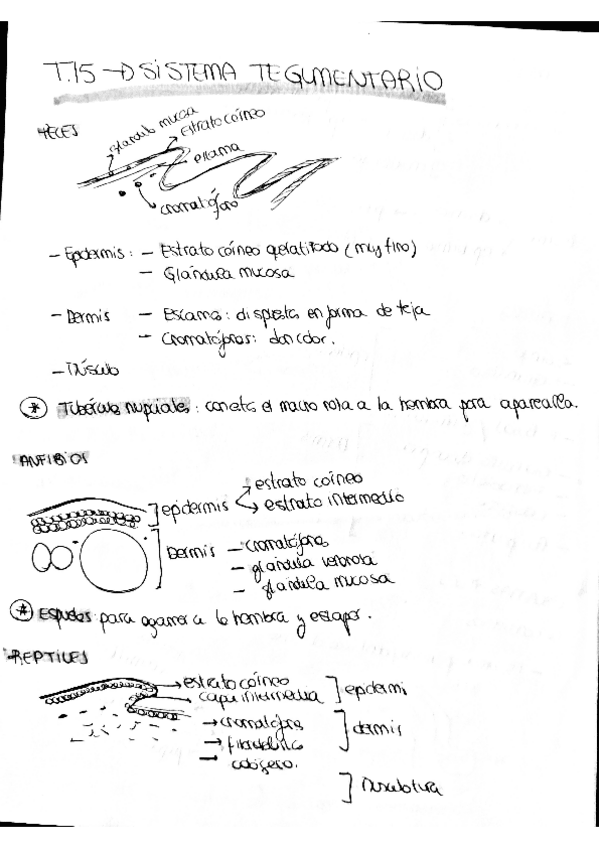 T.15 → SISTEMA TEGUMENTARIO
PECES
glándula mucosa
Estrato córneo
escama
cromatóforo
- Epidermis: - Estrato córneo queratinizado (muy fino)
- Glándula mucosa
- Dermis - Escama: dispuesta en forma de teja
- Cromatóforos: dan color.
- Músculo
* Tubérculos nupciales: con ellos el macho rota a la hembra para aparearla.
ANFIBIOS
epidermis
estrato córneo
estrato intermedio
Dermis - cromatóforos
- glándula
- glándula mucosa
* Espuelas: para agarrar a la hembra y
REPTILES
estrato córneo
capa intermedia
epidermi
→ cromatóforos
→
→
dermis
Musculatura